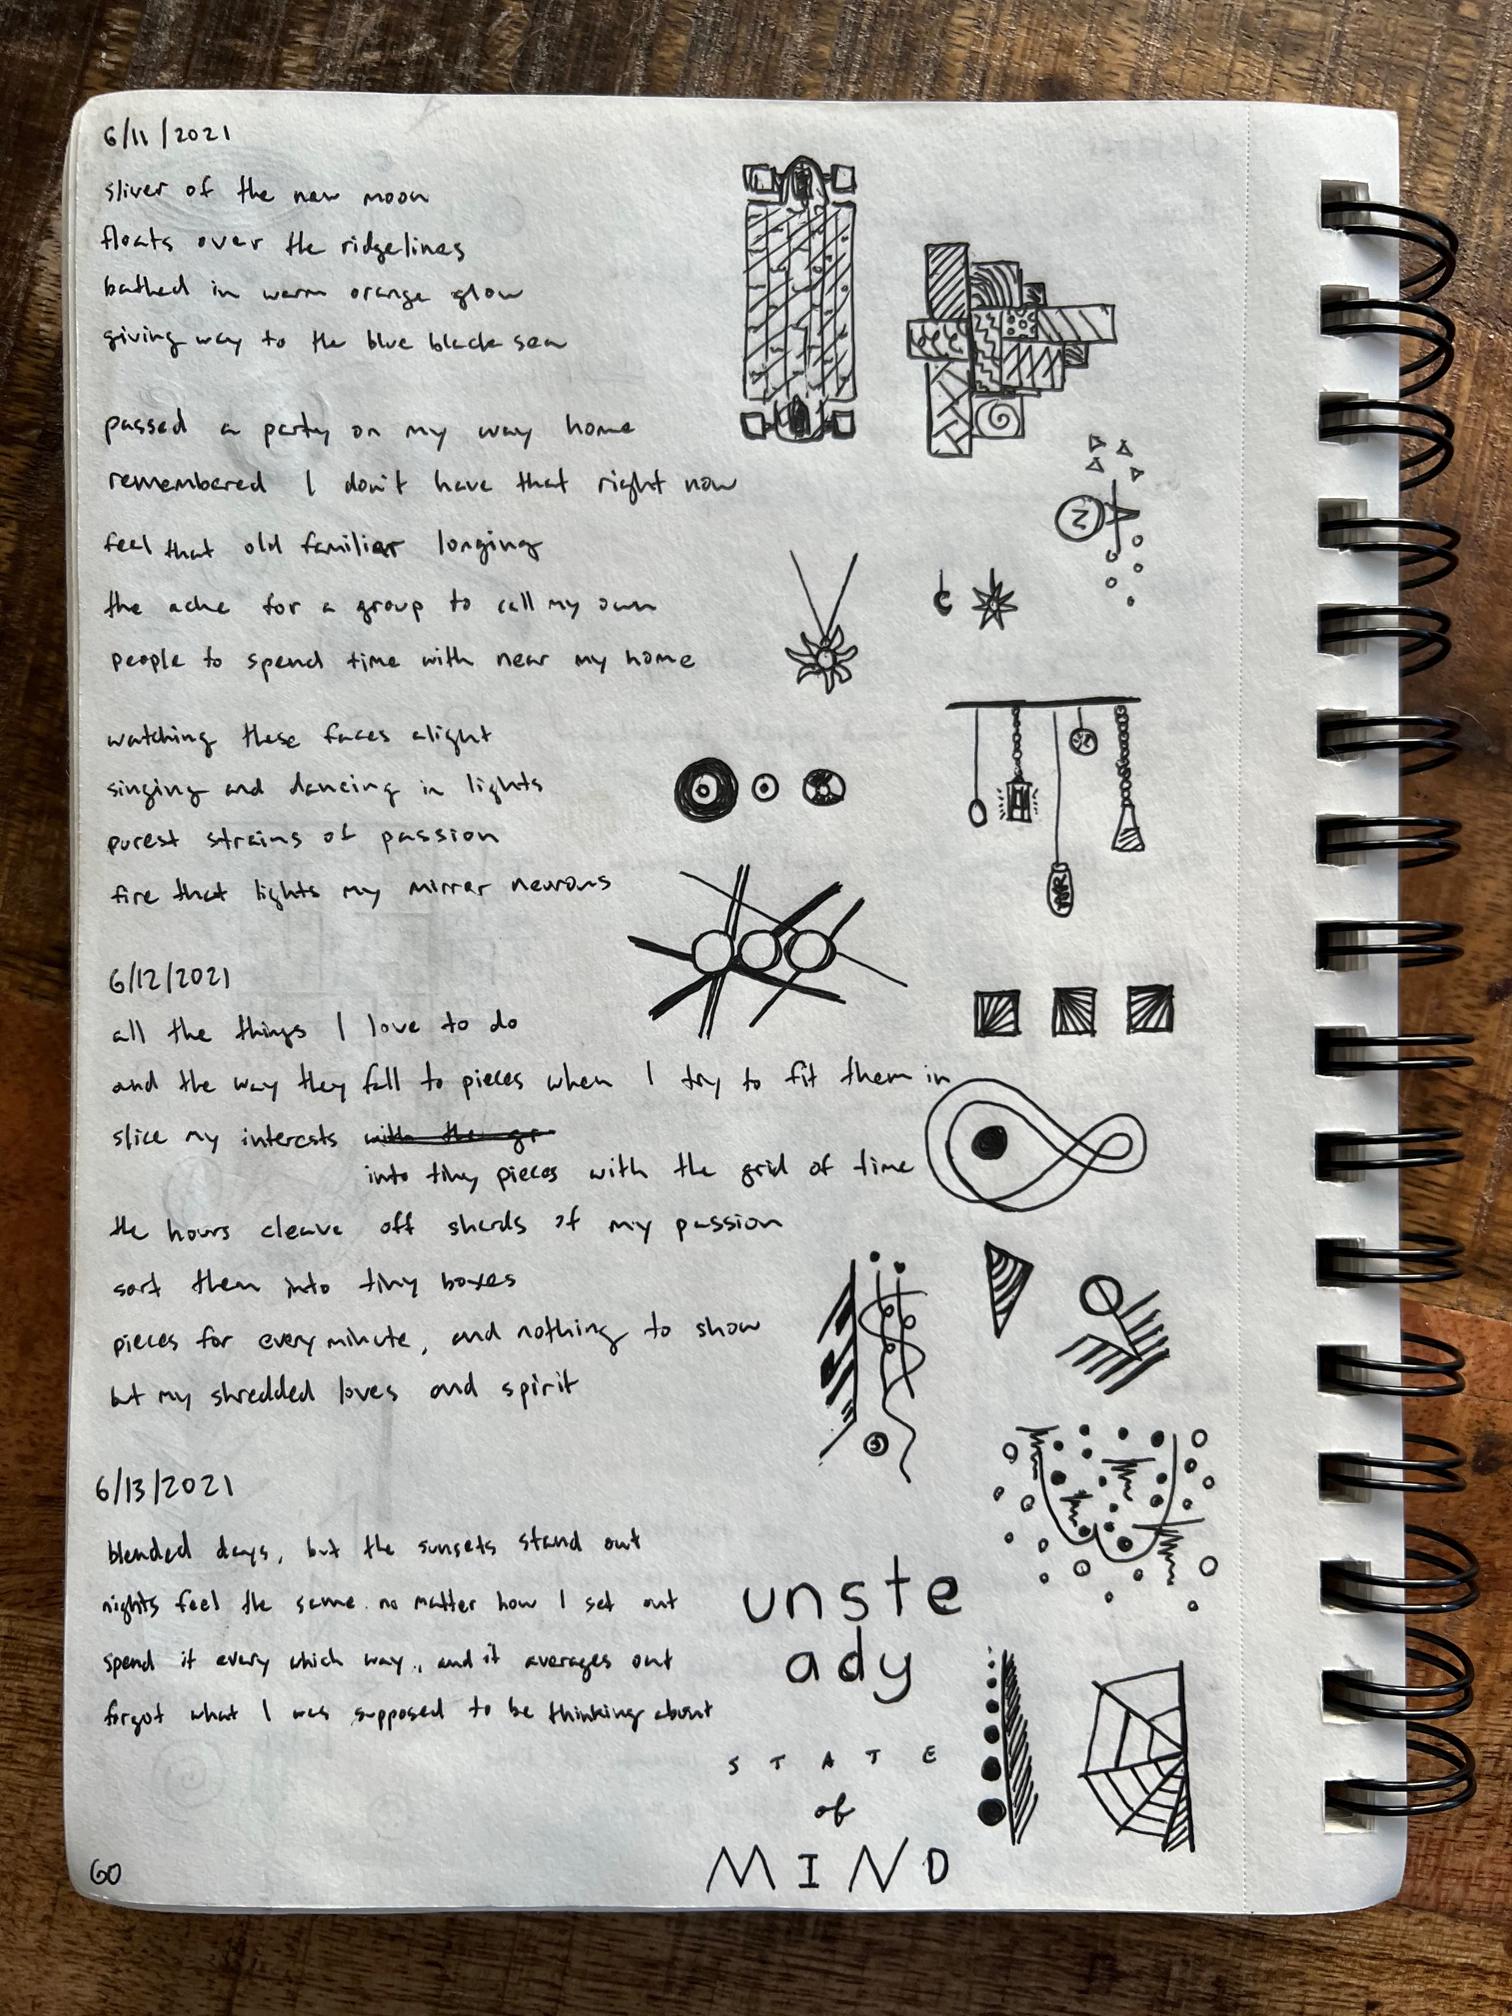 6/11/2021
sliver of the new moon
floats over the ridgelines
bathed in warm orange glow
giving way to the blue black sea
passed a party on my way home
remembered I don't have that right now
feel that old familiar longing
the ache for a group to call my own
people to spend time with near my home
watching these faces alight
singing and dancing in lights
purest strains of passion
fire that lights my mirror neurons
6/12/2021
all the things I love to do
and the way they fall to pieces when I try to fit them in
slice my interests with the gr
into tiny pieces with the grid of time
the hours cleave off shards of my passion
sort them into tiny boxes
pieces for every minute, and nothing to show
but my shredded loves and spirit
6/13/2021
blended days, but the sunsets stand out
nights feel the same no matter how I set out
spend it every which way, and it averages out
forgot what I was supposed to be thinking about
unste
ady
STATE
of
MIND
60